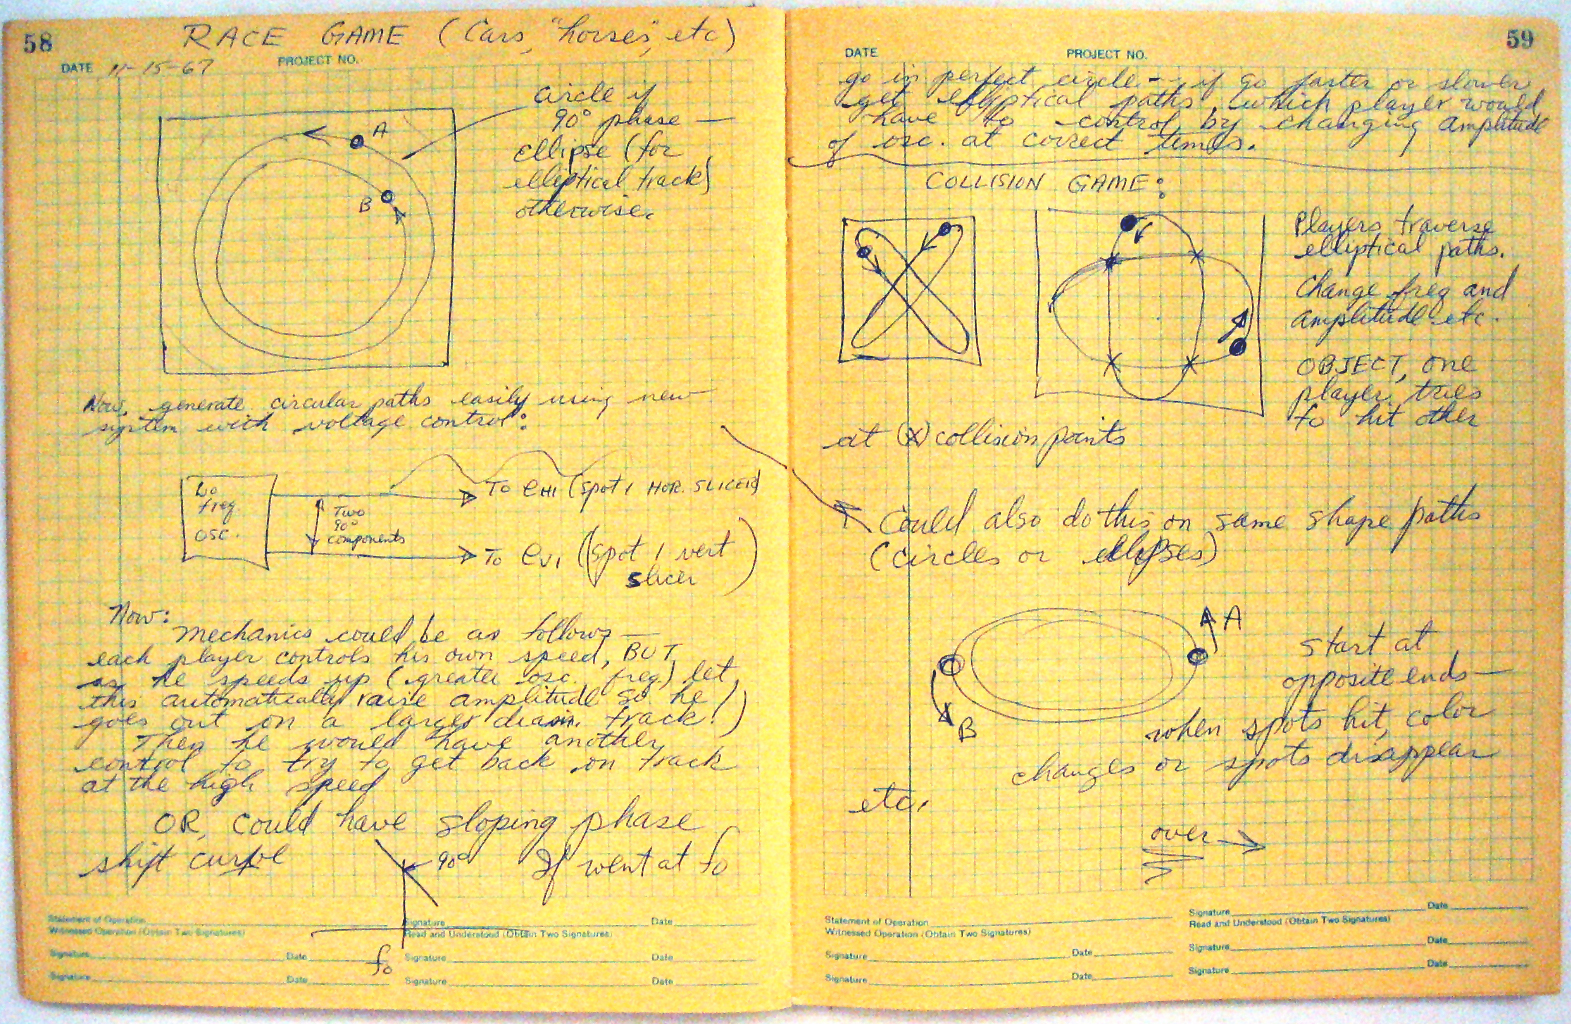 58
RACE GAME (Cars, "horses", etc)
DATE 11-15-67 PROJECT NO.
circle if
90° phase —
ellipse (for
elliptical track)
otherwise.
A
B
Now, generate circular paths easily using new
system with voltage control:
Lo
freq.
osc.
Two
90°
components
To eH1 (spot 1 HOR. SLICER)
To eV1 (spot 1 vert
slicer)
Now:
Mechanics could be as follows —
each player controls his own speed, BUT
as he speeds up (greater osc. freq) let
this automatically raise amplitude so he
goes out on a larger diam. track!)
Then he would have another
control to try to get back on track
at the high speed
OR, could have sloping phase
shift curve
90°
If went at fo
fo
Statement of Operation
Witnessed Operation (Obtain Two Signatures)
Signature Date
Signature Date
Signature Date
Read and Understood (Obtain Two Signatures)
Signature Date
Signature Date
59
DATE PROJECT NO.
go in perfect circle -- if go faster or slower
get elliptical paths which player would
have to control by changing amplitude
of osc. at correct times.
COLLISION GAME:
Players traverse
elliptical paths.
Change freq and
amplitude etc.
OBJECT, one
player tries
to hit other
at (X) collision points
Could also do this on same shape paths
(circles or ellipses)
A
B
start at
opposite ends —
when spots hit, color
changes or spots disappear
etc.
over →
Statement of Operation
Witnessed Operation (Obtain Two Signatures)
Signature Date
Signature Date
Signature Date
Read and Understood (Obtain Two Signatures)
Signature Date
Signature Date